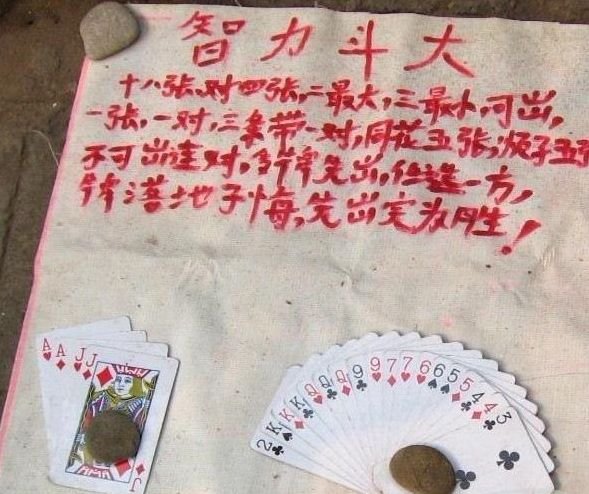 智力斗大
十八张,对四张,二最大,三最小,可出,
一张,一对,三条带一对,同花五张,顺子五
不可出连对,先出,任选一方,
牌落地子悔,先出完为胜!
A A J J
J
2 K K K Q Q Q 9 9 7 7 6 6 5 5 4 4 3